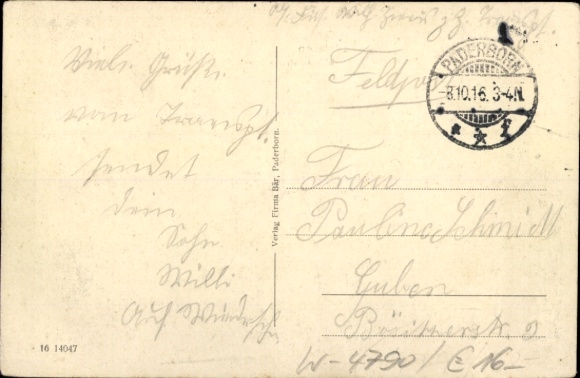 Viele Grüße
vom Transpt.
sendet
dein
Sohn
Willi
Auf Wiedersehn
16 14047
Verlag Firma Bär, Paderborn.
z. Z. Transpt.
Feldpost
PADERBORN
-8.10.16. 3-4N.
* * f
Frau
Pauline Schmidt
Guben
W-4790/ E 16-